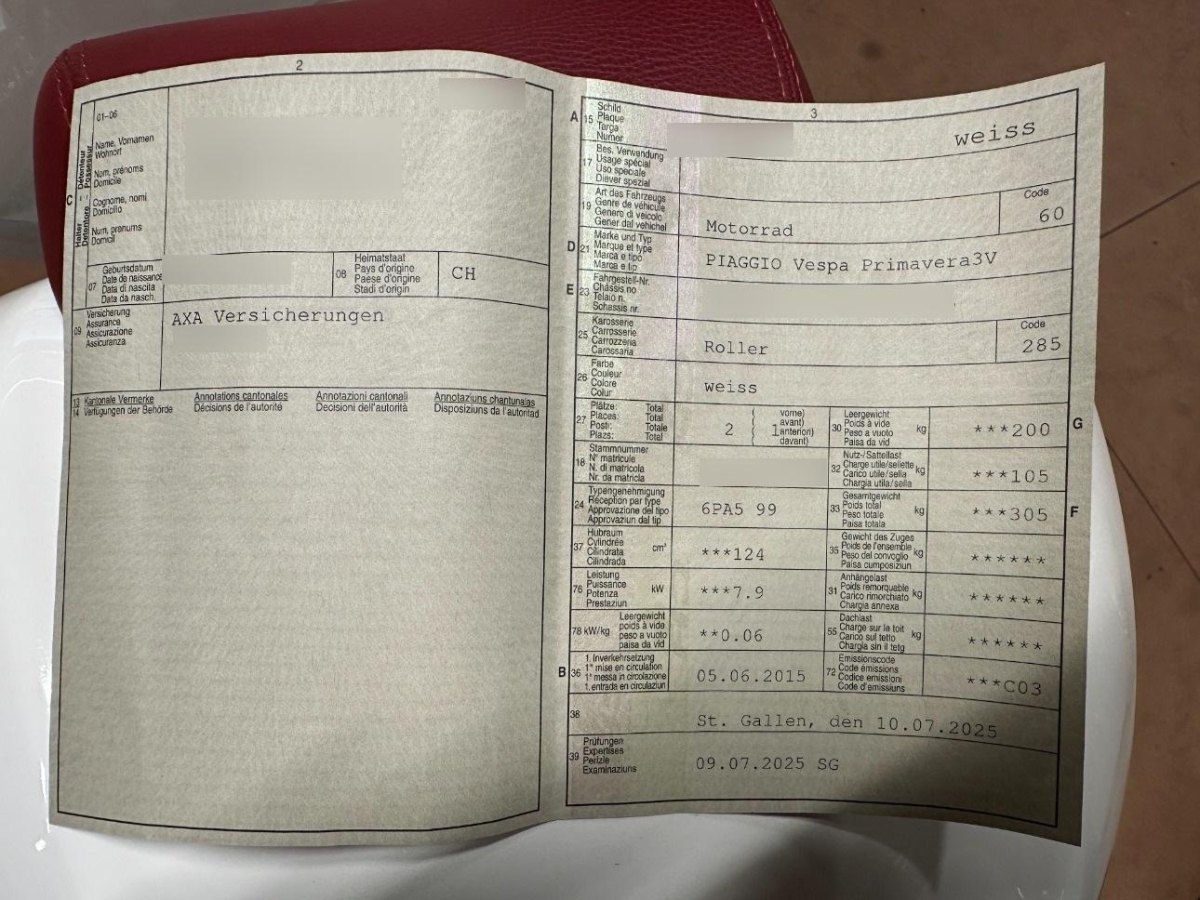 2
01-06
C
Halter
Détenteur
Detentore
Possessur
Name, Vornamen
Wohnort
Nom, prénoms
Domicile
Cognome, nomi
Domicilio
Num, prenums
Domicil
07 Geburtsdatum
Date de naissance
Data di nascita
Data da nasch.
08 Heimatstaat
Pays d'origine
Paese d'origine
Stadi d'origin
CH
09 Versicherung
Assurance
Assicurazione
Assicuranza
AXA Versicherungen
13 Kantonale Vermerke Annotations cantonales Annotazioni cantonali Annotaziuns chantunalas
14 Verfügungen der Behörde Décisions de l'autorité Decisioni dell'autorità Disposiziuns da l'autoritad
3
A 15 Schild
Plaque
Targa
Numer
weiss
17 Bes. Verwendung
Usage spécial
Uso speciale
Diever spezial
19 Art des Fahrzeugs
Genre de véhicule
Genere di veicolo
Gener dal vehichel
Motorrad
Code
60
D 21 Marke und Typ
Marque et type
Marca e tipo
Marca e tip
PIAGGIO Vespa Primavera3V
E 23 Fahrgestell-Nr.
Châssis no
Telaio n.
Schassis nr.
25 Karosserie
Carrosserie
Carrozzeria
Carossaria
Roller
Code
285
26 Farbe
Couleur
Colore
Colur
weiss
27 Plätze: Total
Places: Total
Posti: Totale
Plazs: Total
2
( vorne)
avant)
1 anteriori)
davant)
30 Leergewicht
Poids à vide
Peso a vuoto
Paisa da vid
kg
***200
G
18 Stammnummer
N° matricule
N. di matricola
Nr. da matricla
32 Nutz-/Sattellast
Charge utile/sellette
Carico utile/sella
Chargia utila/sella
kg
***105
24 Typengenehmigung
Réception par type
Approvazione del tipo
Approvaziun dal tip
6PA5 99
33 Gesamtgewicht
Poids total
Peso totale
Paisa totala
kg
***305
F
37 Hubraum
Cylindrée
Cilindrata
Cilindrada
cm³
***124
35 Gewicht des Zuges
Poids de l'ensemble
Peso del convoglio
Paisa cumposiziun
kg
******
76 Leistung
Puissance
Potenza
Prestaziun
kW
***7.9
31 Anhängelast
Poids remorquable
Carico rimorchiato
Chargia annexa
kg
******
78 kW/kg
Leergewicht
poids à vide
peso a vuoto
paisa da vid
**0.06
55 Dachlast
Charge sur le toit
Carico sul tetto
Chargia sin il tetg
kg
******
B 36 1. Inverkehrsetzung
1re mise en circulation
1a messa in circolazione
1. entrada en circulaziun
05.06.2015
72 Emissionscode
Code émissions
Codice emissioni
Code d'emissiuns
***C03
38
St. Gallen, den 10.07.2025
39 Prüfungen
Expertises
Perizie
Examinaziuns
09.07.2025 SG